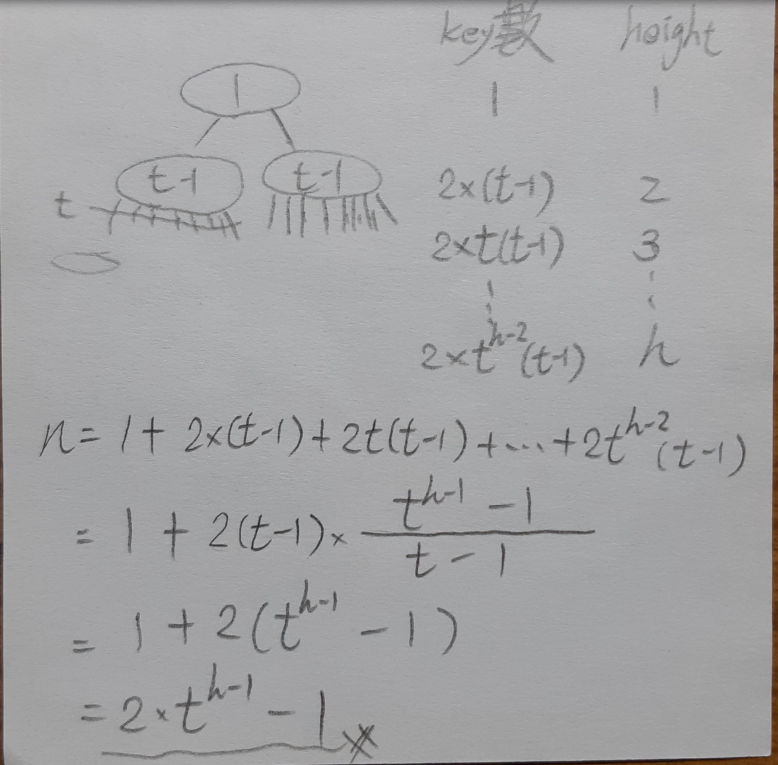 key數 height
1 1 1
t-1 t-1 2×(t-1) 2
t 2×t(t-1) 3
⋮ ⋮
2×t^{h-2}(t-1) h
n= 1+ 2×(t-1)+2t(t-1)+⋯+2t^{h-2}(t-1)
= 1 + 2(t-1)× \frac{t^{h-1} - 1}{t - 1}
= 1 + 2(t^{h-1} - 1)
= 2×t^{h-1} - 1